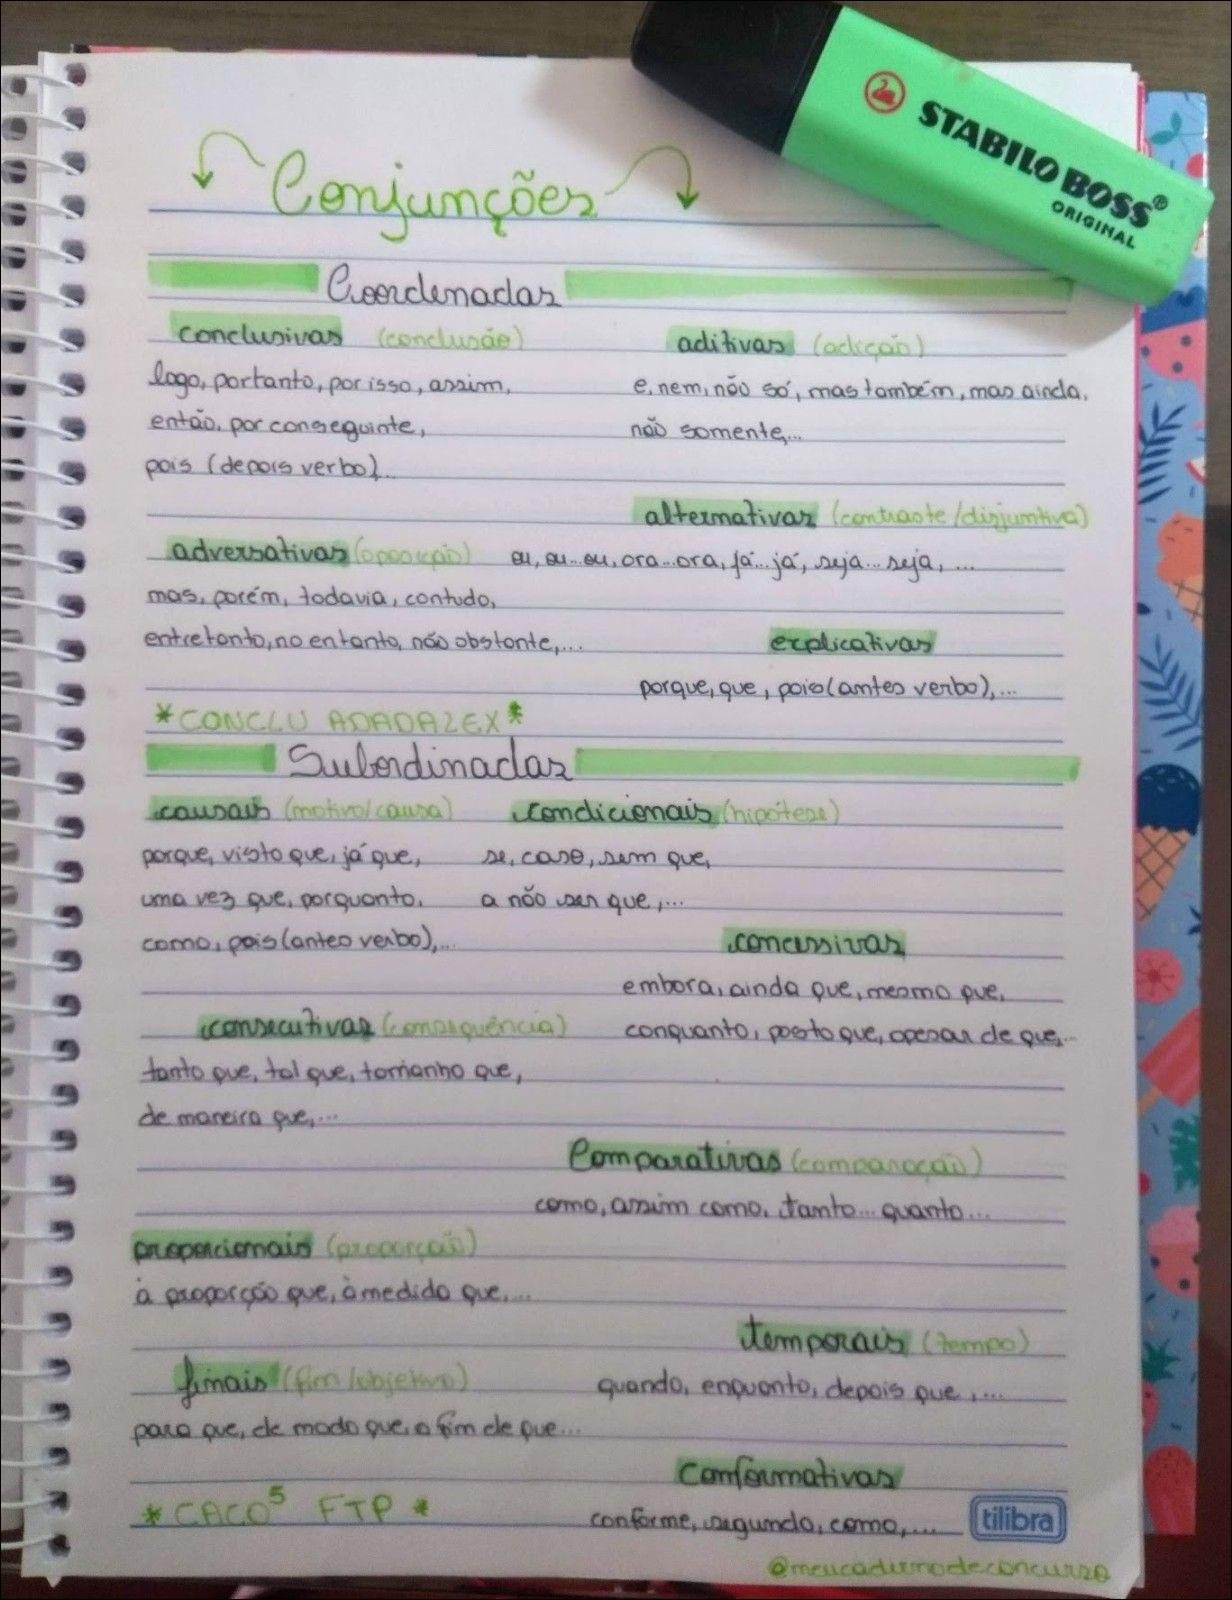 STABILO BOSS®
ORIGINAL
Conjunções
Coordenadas
conclusivas (conclusão)
logo, portanto, por isso, assim,
então, por conseguinte,
pois (depois verbo)...
aditivas (adição)
e, nem, não só, mas também, mas ainda,
não somente,...
alternativas (contraste/disjuntiva)
ou, ou...ou, ora...ora, já...já, seja...seja, ...
adversativas (oposição)
mas, porém, todavia, contudo,
entretanto, no entanto, não obstante,...
explicativas
porque, que, pois (antes verbo),...
*CONCLU ADADALEX*
Subordinadas
causais (motivo/causa)
porque, visto que, já que,
uma vez que, porquanto,
como, pois (antes verbo),...
condicionais (hipótese)
se, caso, sem que,
a não ser que,...
concessivas
embora, ainda que, mesmo que,
conquanto, posto que, apesar de que,...
consecutivas (consequência)
tanto que, tal que, tamanho que,
de maneira que,...
Comparativas (comparação)
como, assim como, tanto...quanto...
proporcionais (proporção)
à proporção que, à medida que,...
temporais (tempo)
quando, enquanto, depois que,...
finais (fim/objetivo)
para que, de modo que, a fim de que...
Conformativas
conforme, segundo, como,...
*CACO⁵ FTP*
tilibra
@meucadernodeconcurso